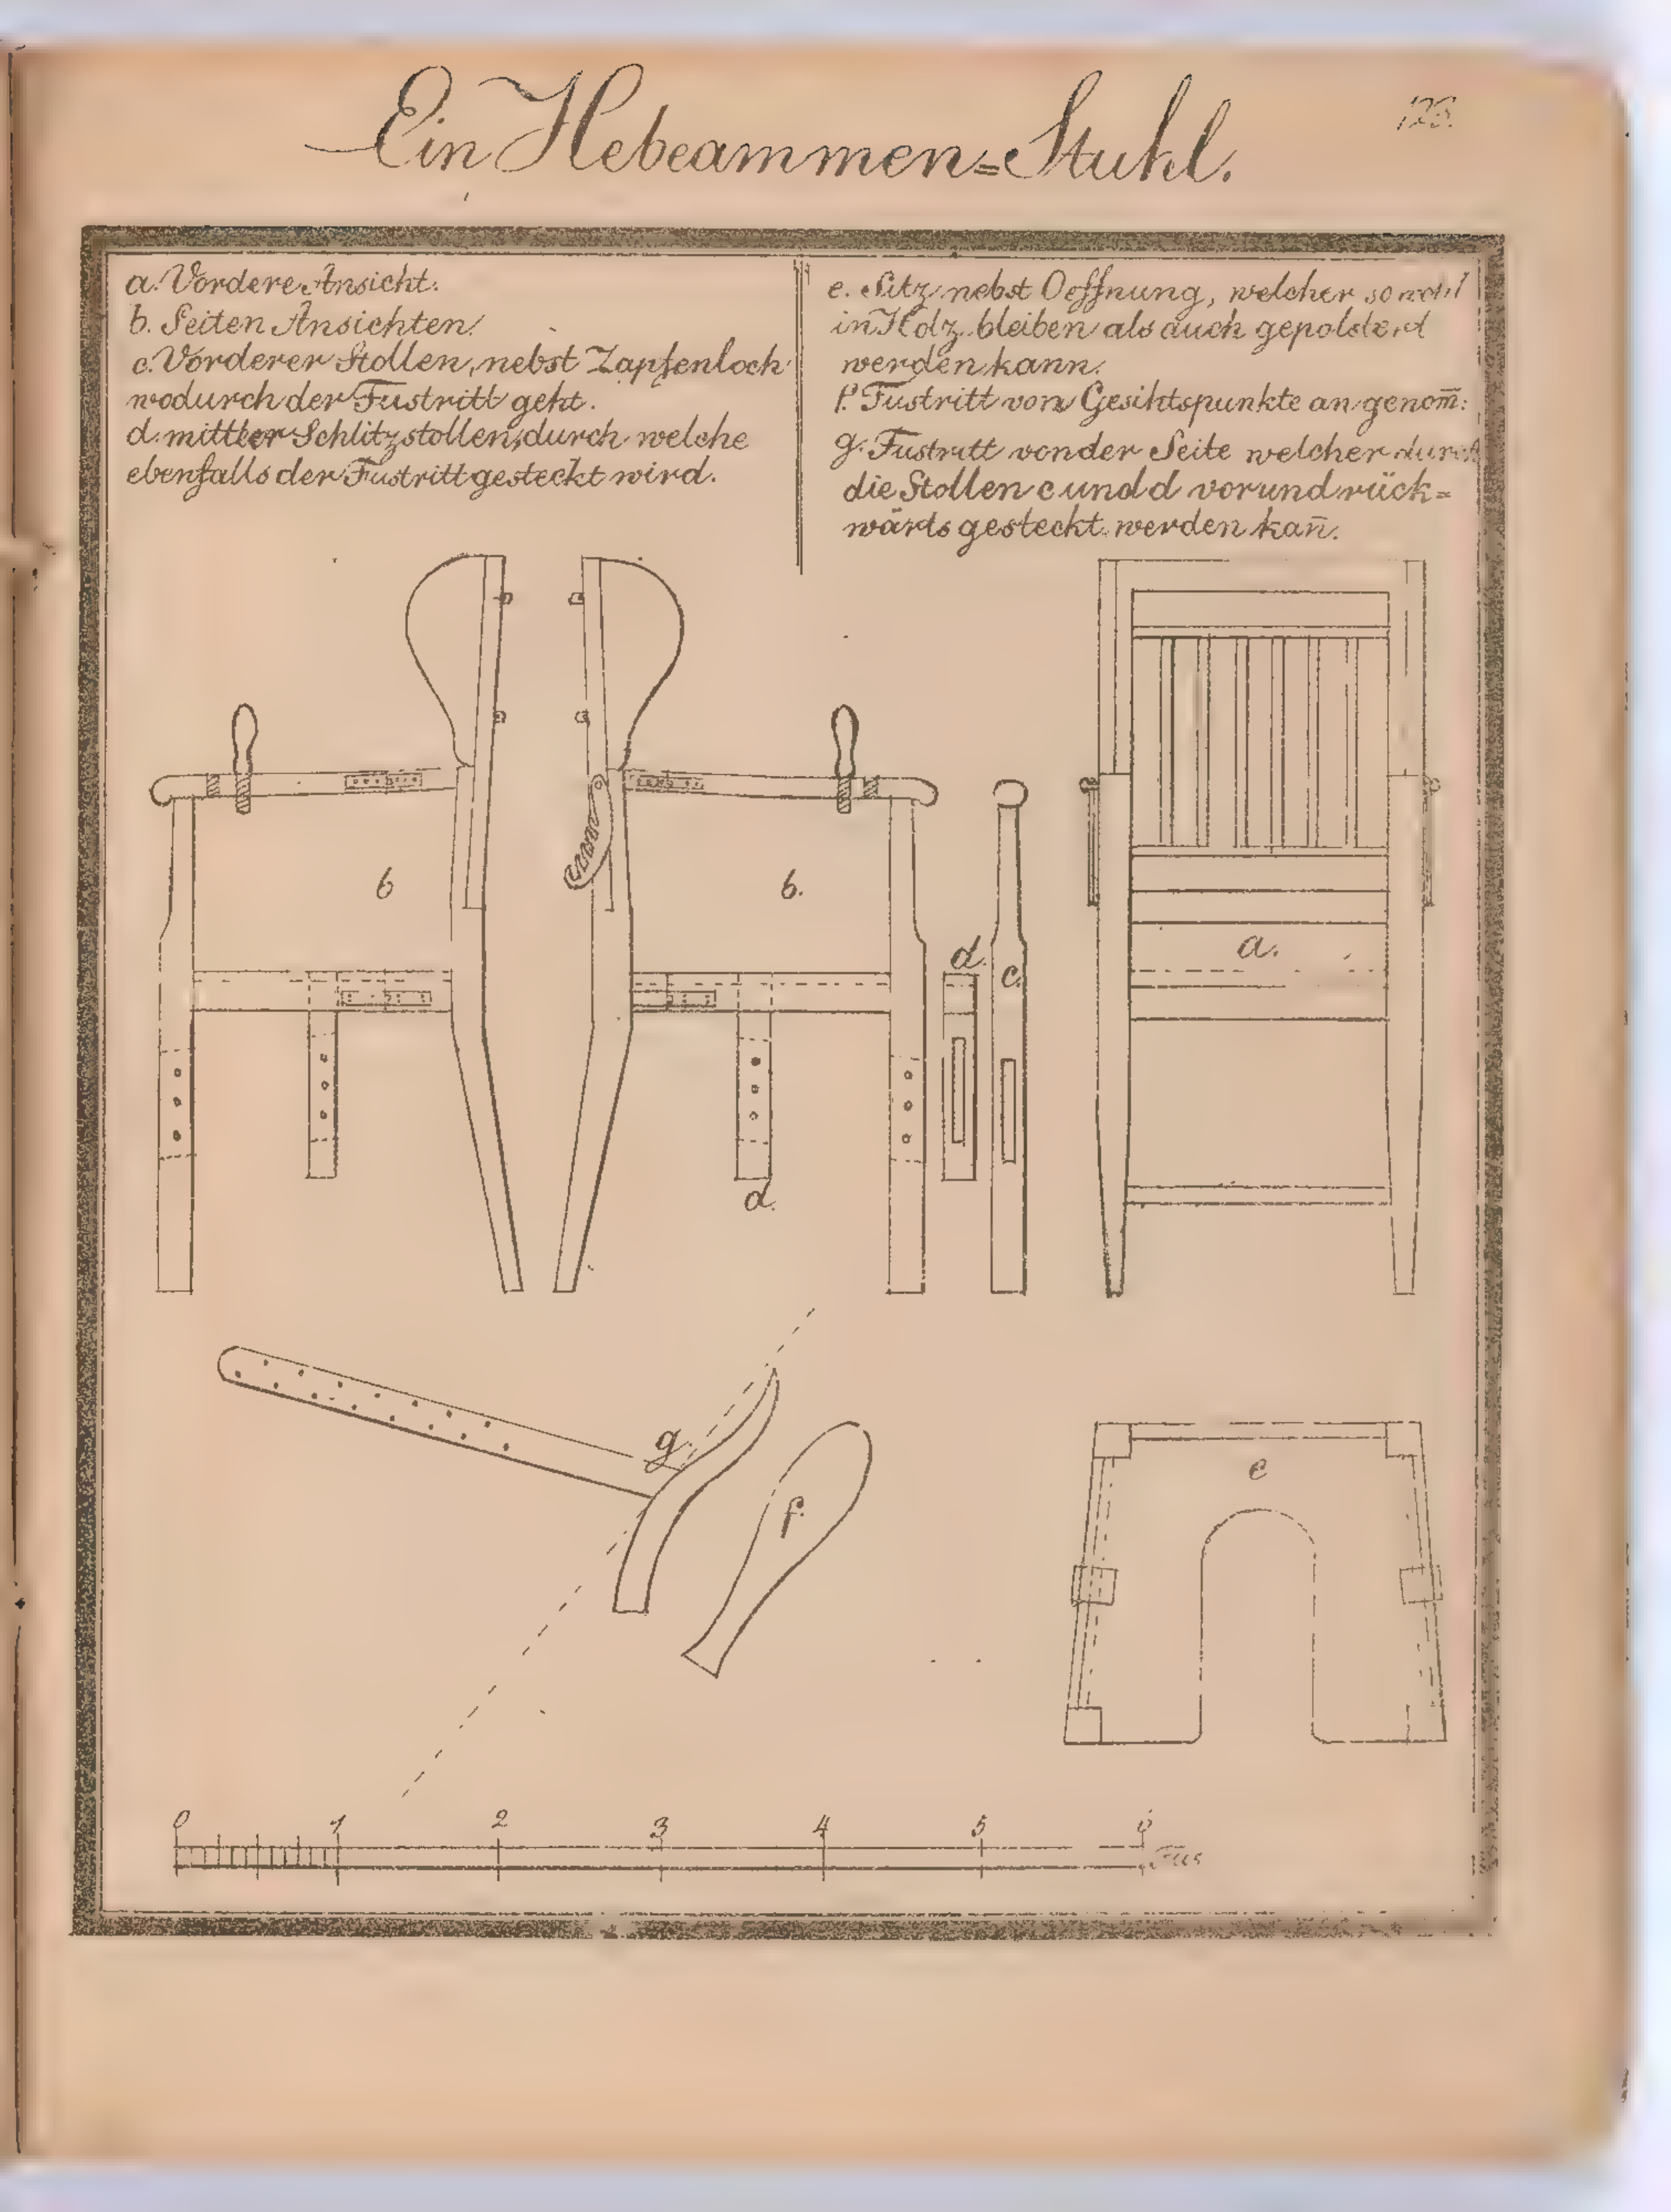 Ein Hebeammen=Stuhl.
123.
a. Vordere Ansicht.
b. Seiten Ansichten.
c. Vorderer Stollen, nebst Zapfenloch
wodurch der Fustritt geht.
d. mittler Schlitzstollen, durch welche
ebenfalls der Fustritt gesteckt wird.
e. Sitz nebst Oeffnung, welcher sowohl
in Holz bleiben als auch gepolstert
werden kann.
f. Fustritt vorn Gesihtspunkte angenom̅:
g. Fustritt von der Seite welcher durch
die Stollen c und d vor und rück=
wärts gesteckt werden kan̅.
b
b.
d.
c.
a.
d.
g.
f.
e
0 1 2 3 4 5 6
Fus